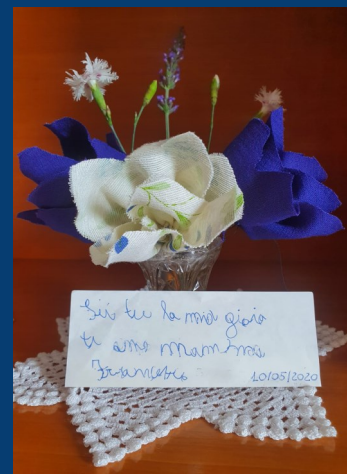 Sei tu la mia gioia
ti amo mamma
Francesco
10/05/2020